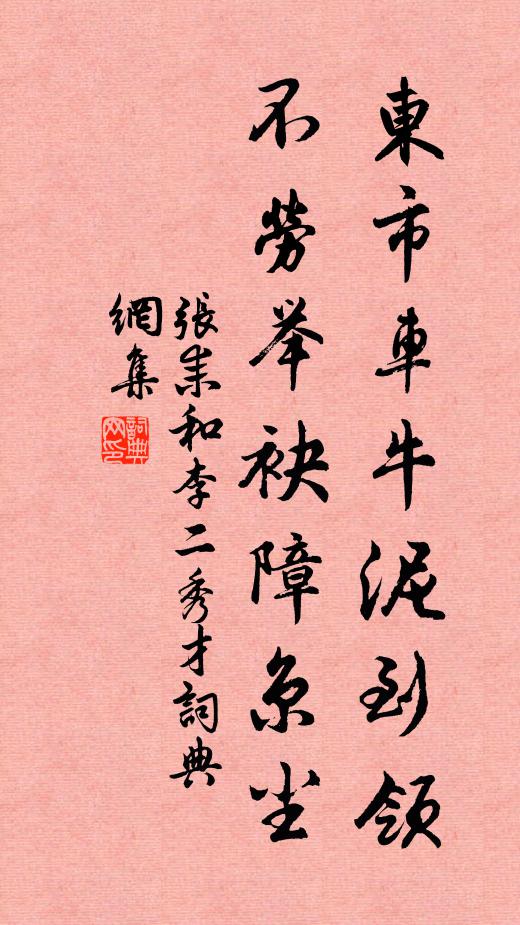 東市車牛泥到領
不勞举袂障京尘
張耒和李二秀才詞典
網集
詞典網印